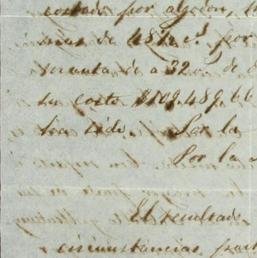 costado por algodon, l
mas de 48½ cs. por
venta de a 32, de d
su costo $109,489.66
sea sido. Por la
Por la
El resultado
circunstancias, par